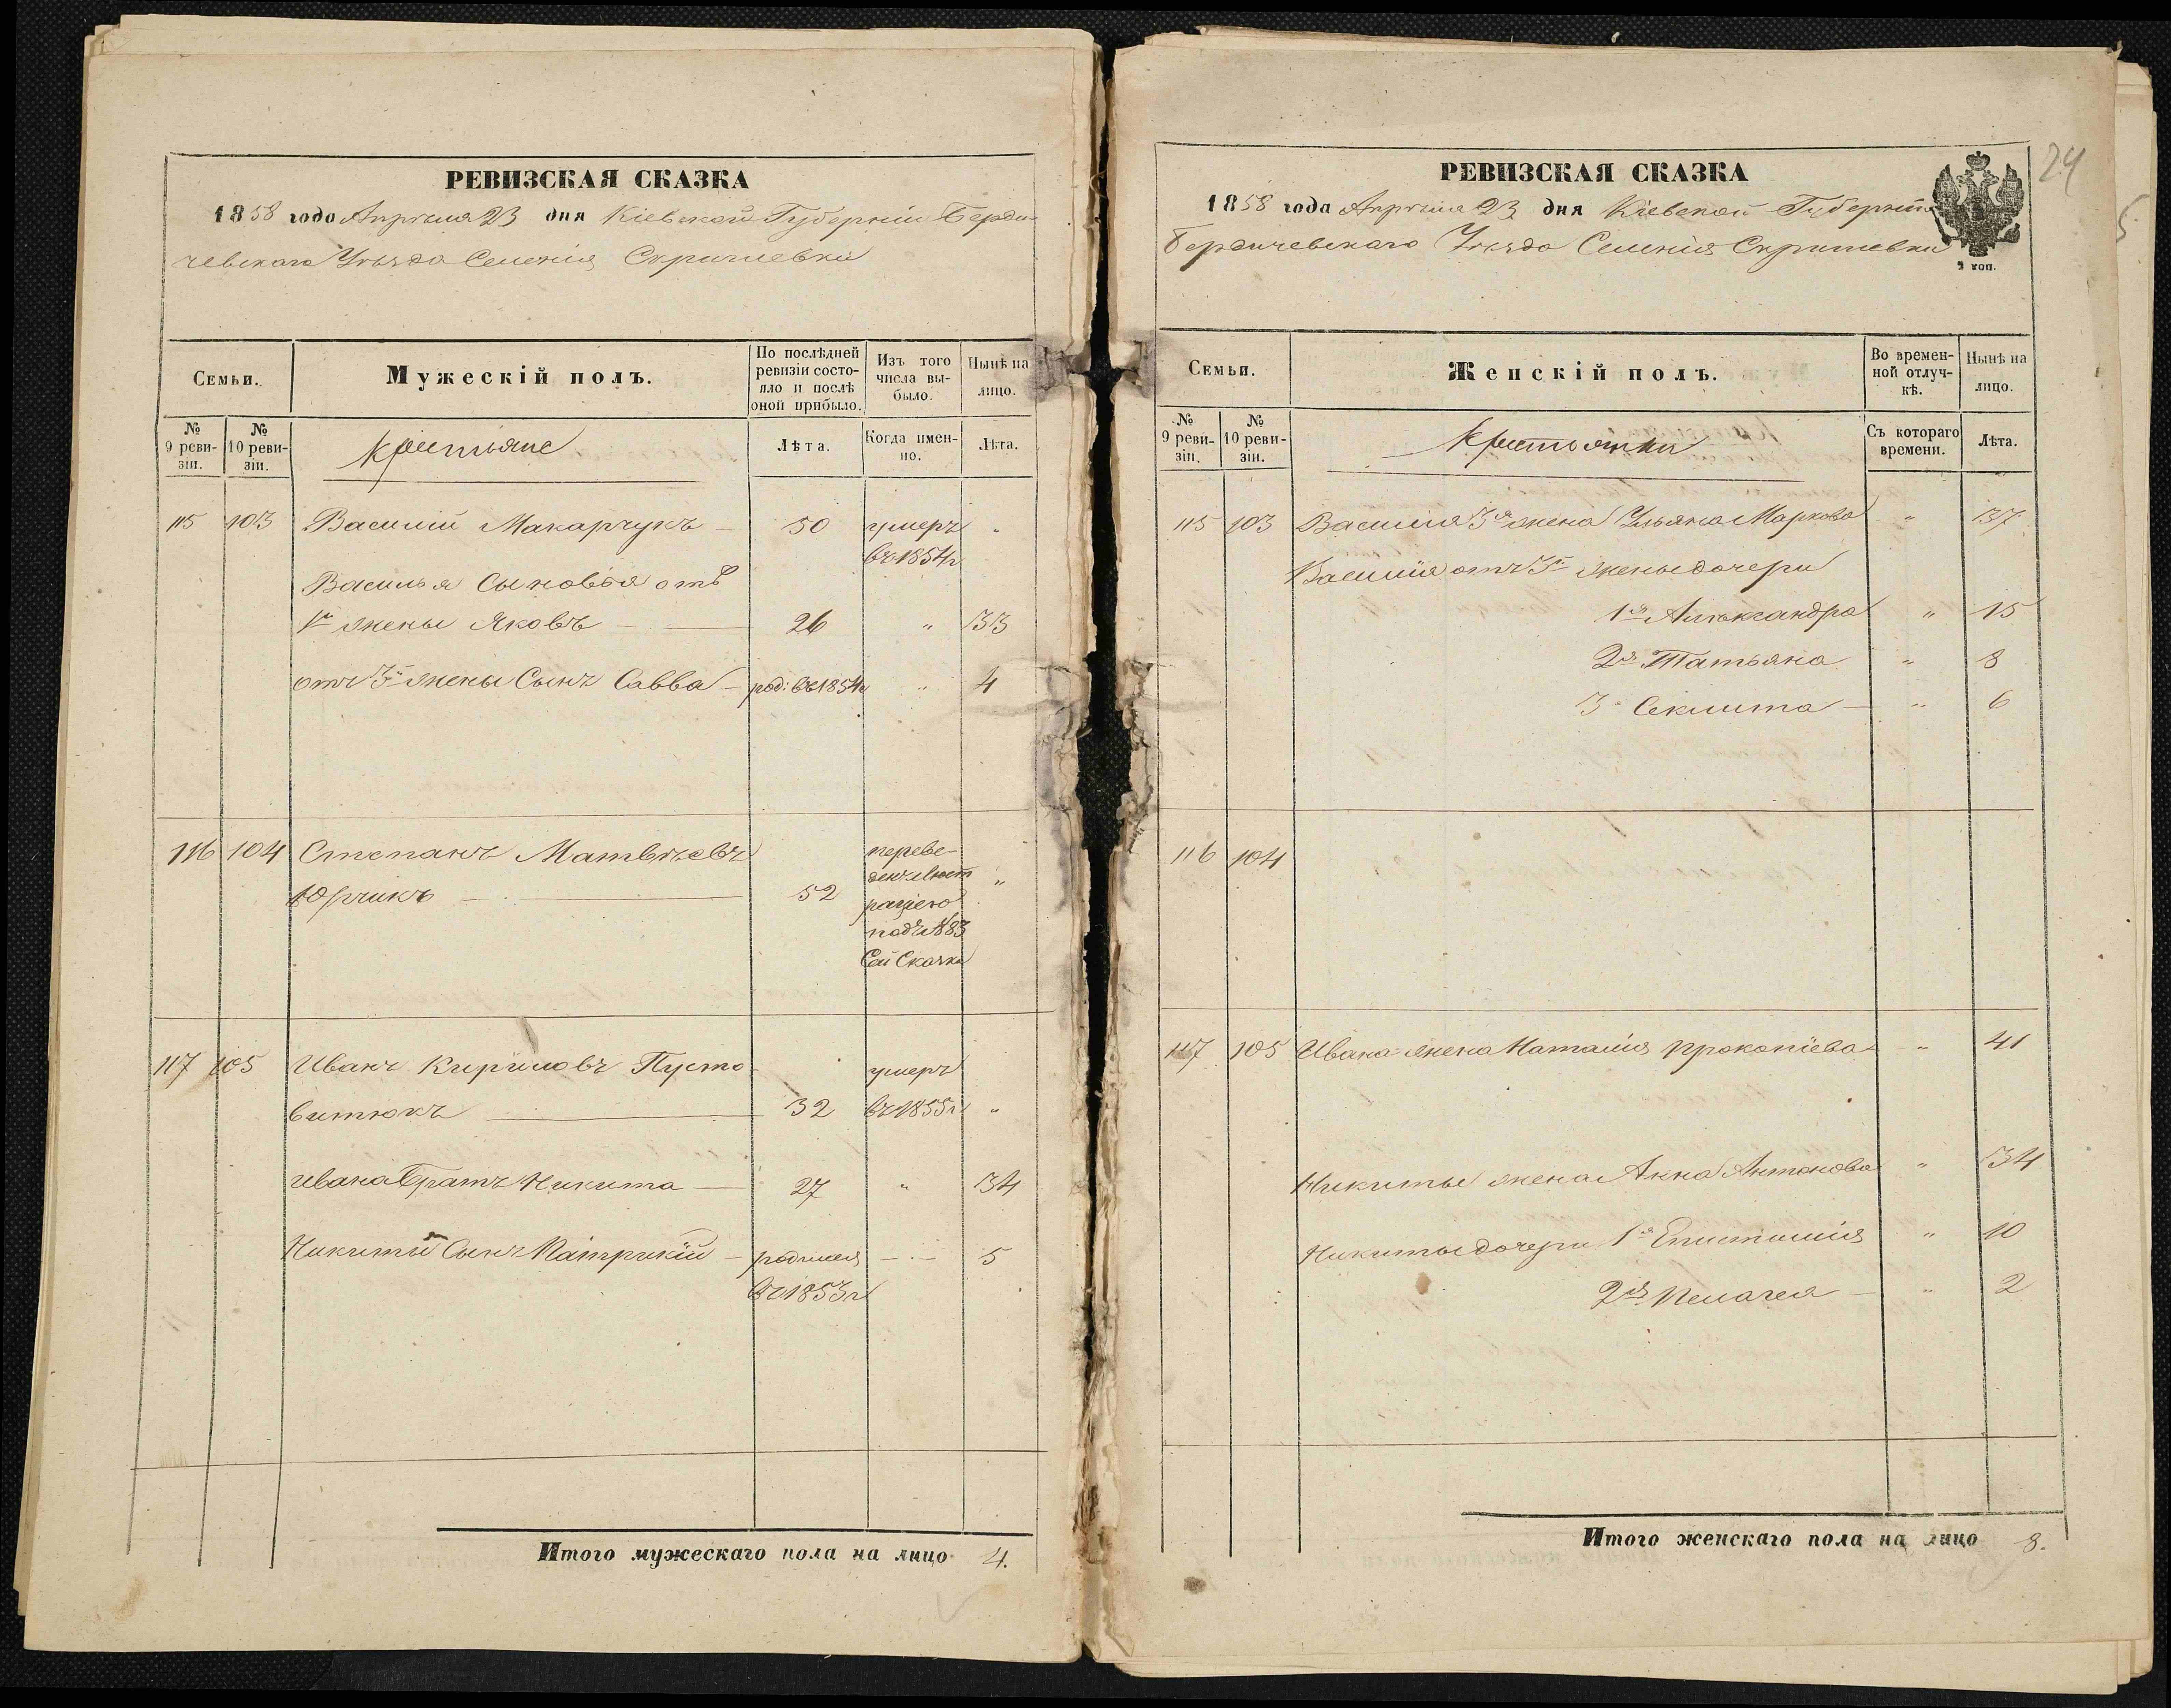 РЕВИЗСКАЯ СКАЗКА
1858 года Апрѣля 23 дня Кіевской Губерніи Берди-
чевскаго Уѣзда Селенія Скригиевки
Семьи.
Мужескій полъ.
По послѣдней ревизіи состояло и послѣ оной прибыло.
Изъ того числа выбыло.
Нынѣ на лицо.
№ 9 ревизіи.
№ 10 ревизіи.
Крестьяне
Лѣта.
Когда именно.
Лѣта.
115 103 Василій Макарчукъ — 50 умеръ "
въ 1854г
Василья Сыновья отъ
1й жены Яковъ — 26 " 33
отъ 3й жены Сынъ Савва — род: въ 1854г " 4
116 104 Степанъ Матвѣевъ переве-
Юрчикъ — 52 "
подъ №83
Сей Сказки
117 105 Иванъ Кириловъ Пусто- умеръ
витюкъ — 32 въ 1855г "
Ивана Братъ Никита — 27 " 34
Никиты Сынъ Патрикій — родился — 5
въ 1853г
Итого мужескаго пола на лицо 4.
24
РЕВИЗСКАЯ СКАЗКА
1858 года Апрѣля 23 дня Кіевской Губерніи
Бердичевскаго Уѣзда Селенія Скригиевки
коп.
Семьи.
Женскій полъ.
Во временной отлучкѣ.
Нынѣ на лицо.
№ 9 ревизіи.
№ 10 ревизіи.
Крестьянки
Съ котораго времени.
Лѣта.
115 103 Василія 3я жена Ульяна Маркова " 37
Василія отъ 3й жены дочери
1я Александра " 15
2я Татьяна " 8
3я Секлита — " 6
116 104
117 105 Ивана жена Наталія Прокопіева " 41
Никиты жена Анна Антонова " 34
Никиты дочери 1я Епистимія " 10
2я Пелагея — " 2
Итого женскаго пола на лицо 8.